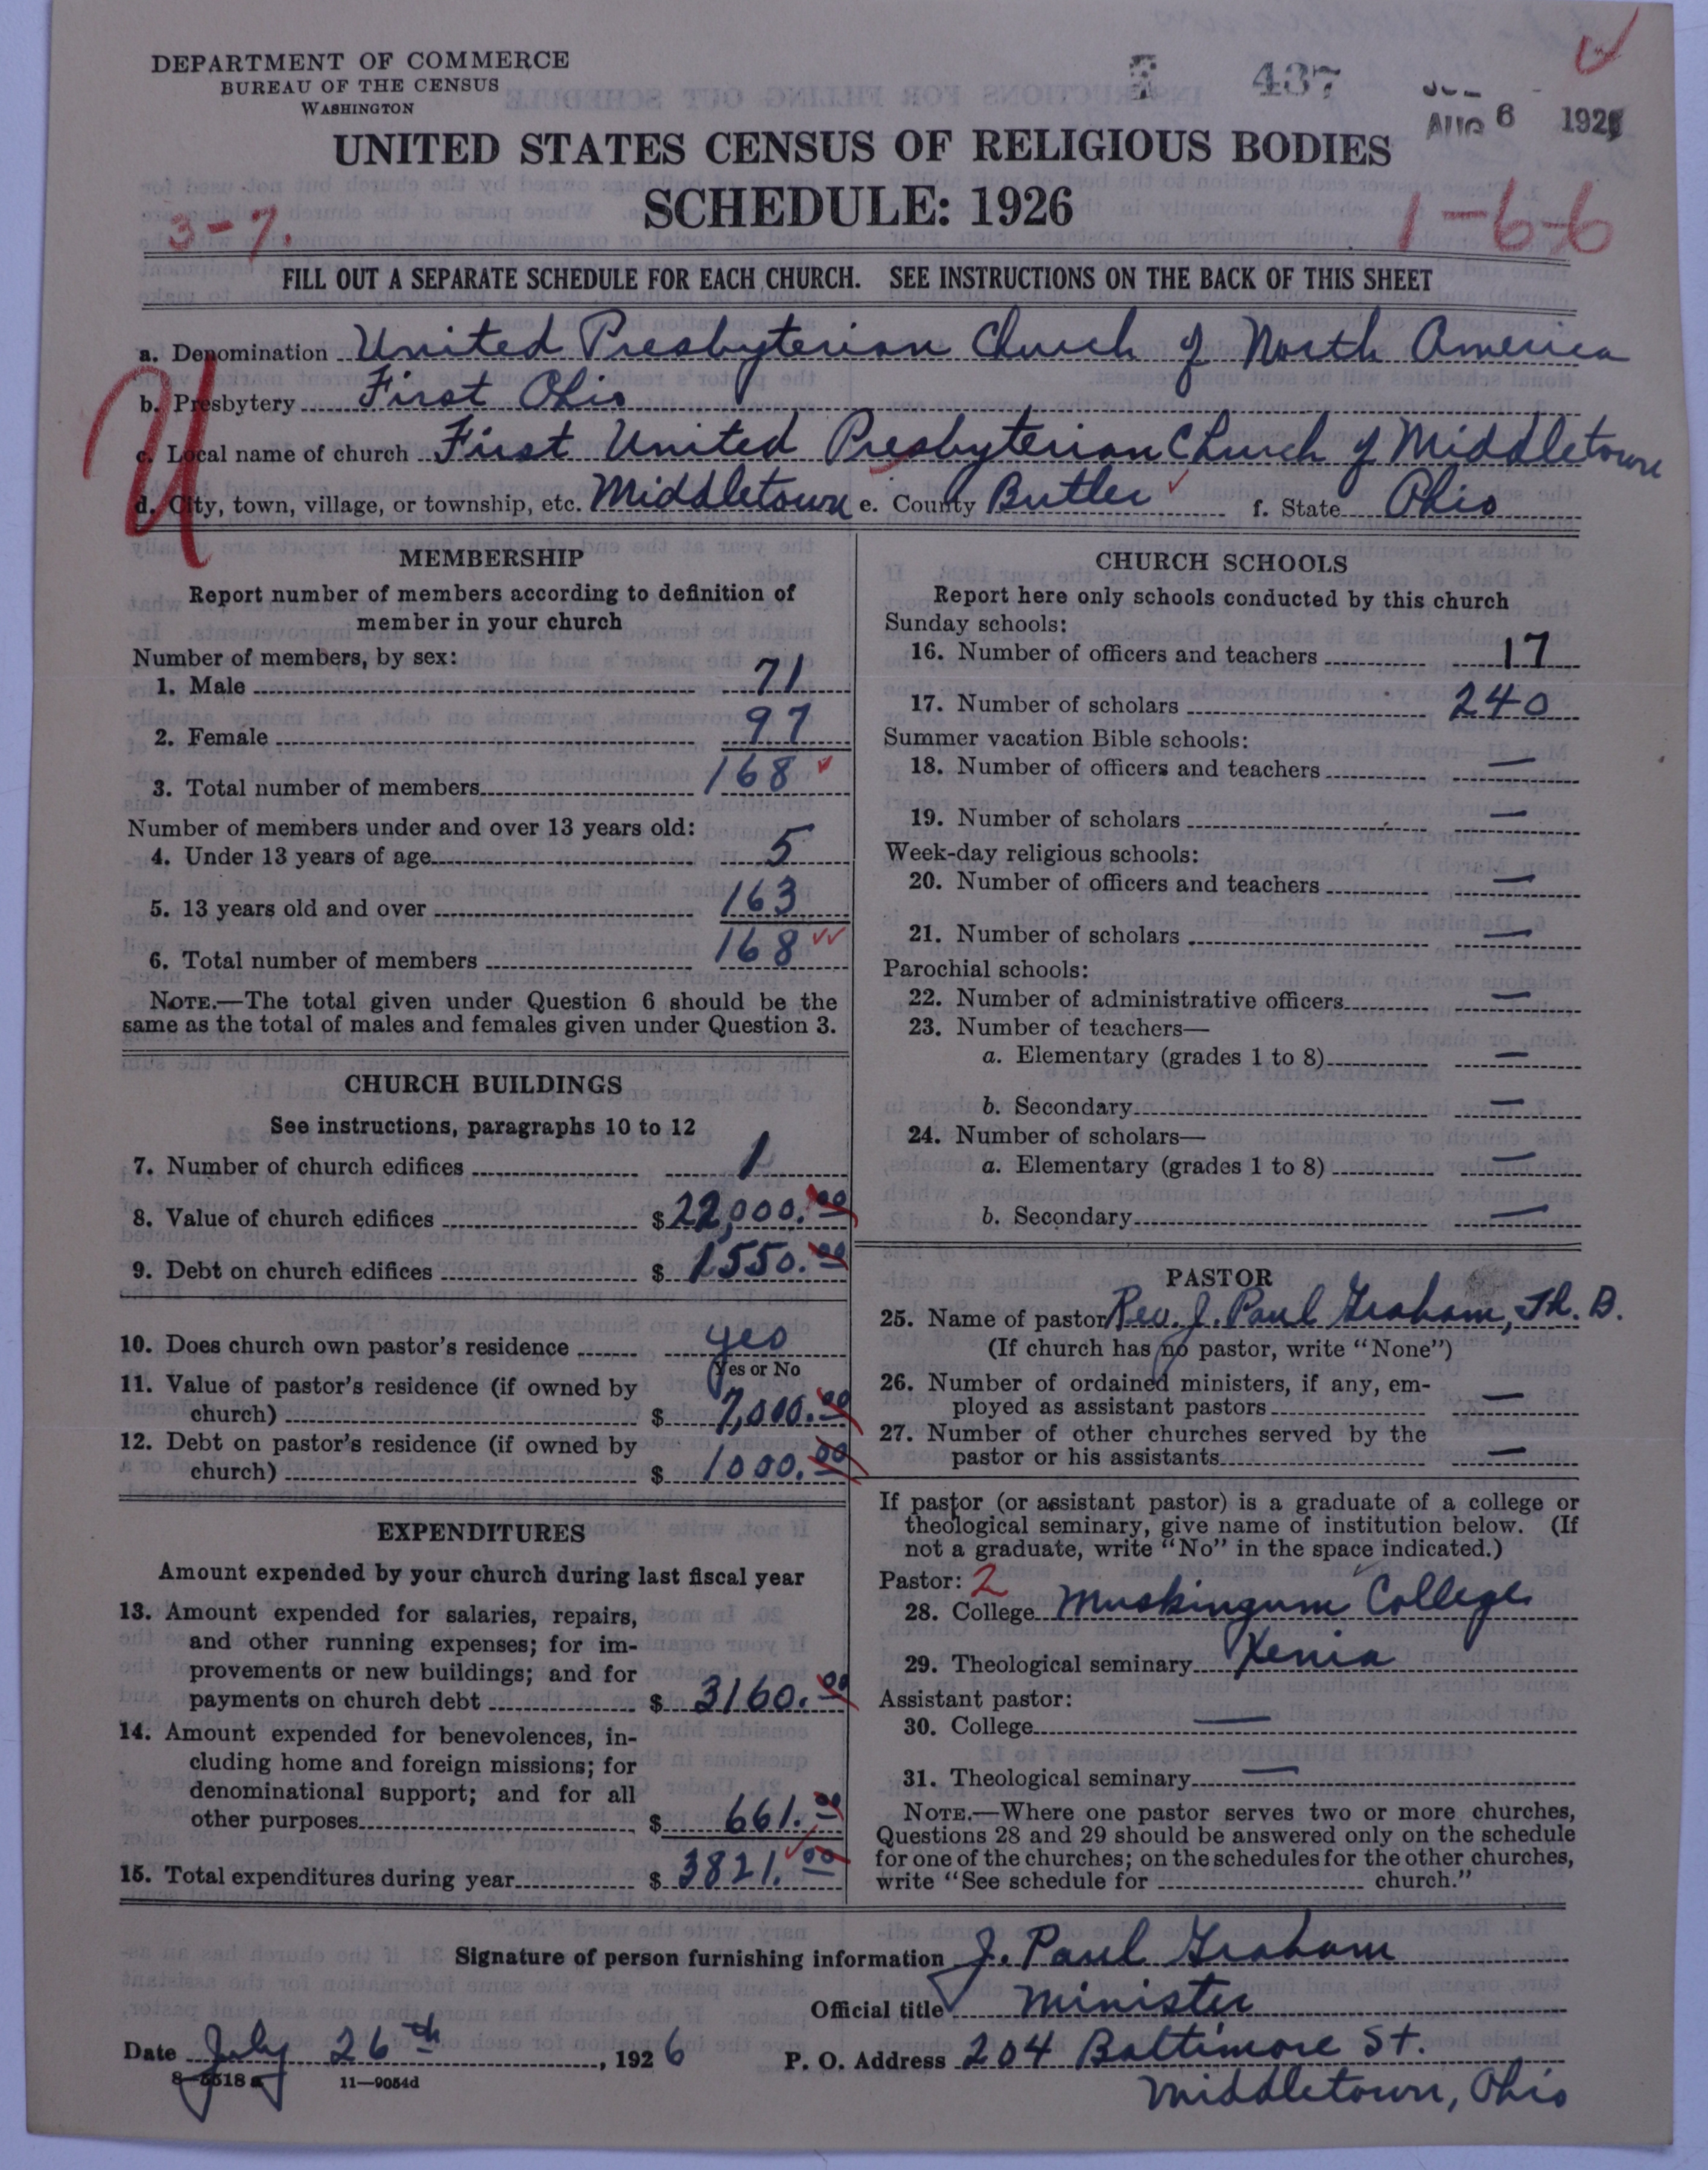 DEPARTMENT OF COMMERCE
BUREAU OF THE CENSUS
WASHINGTON
437
AUG 6 192
UNITED STATES CENSUS OF RELIGIOUS BODIES
SCHEDULE: 1926
3-7.
1-6-6
FILL OUT A SEPARATE SCHEDULE FOR EACH CHURCH. SEE INSTRUCTIONS ON THE BACK OF THIS SHEET
a. Denomination United Presbyterian Church of North America
b. Presbytery First Ohio
c. Local name of church First United Presbyterian Church of Middletown
d. City, town, village, or township, etc. Middletown e. County Butler f. State Ohio
U
MEMBERSHIP
Report number of members according to definition of
member in your church
Number of members, by sex:
1. Male 71
2. Female 97
3. Total number of members 168
Number of members under and over 13 years old:
4. Under 13 years of age 5
5. 13 years old and over 163
6. Total number of members 168
NOTE.—The total given under Question 6 should be the
same as the total of males and females given under Question 3.
CHURCH BUILDINGS
See instructions, paragraphs 10 to 12
7. Number of church edifices 1
8. Value of church edifices $22,000.00
9. Debt on church edifices $1550.00
10. Does church own pastor's residence yes
Yes or No
11. Value of pastor's residence (if owned by
church) $7,000.00
12. Debt on pastor's residence (if owned by
church) $1000.00
EXPENDITURES
Amount expended by your church during last fiscal year
13. Amount expended for salaries, repairs,
and other running expenses; for im-
provements or new buildings; and for
payments on church debt $3160.00
14. Amount expended for benevolences, in-
cluding home and foreign missions; for
denominational support; and for all
other purposes $661.00
15. Total expenditures during year $3821.00
CHURCH SCHOOLS
Report here only schools conducted by this church
Sunday schools:
16. Number of officers and teachers 17
17. Number of scholars 240
Summer vacation Bible schools:
18. Number of officers and teachers —
19. Number of scholars —
Week-day religious schools:
20. Number of officers and teachers —
21. Number of scholars —
Parochial schools:
22. Number of administrative officers —
23. Number of teachers—
a. Elementary (grades 1 to 8) —
b. Secondary —
24. Number of scholars—
a. Elementary (grades 1 to 8) —
b. Secondary —
PASTOR
25. Name of pastor Rev. J. Paul Graham, Th. D.
(If church has no pastor, write "None")
26. Number of ordained ministers, if any, em-
ployed as assistant pastors —
27. Number of other churches served by the
pastor or his assistants —
If pastor (or assistant pastor) is a graduate of a college or
theological seminary, give name of institution below. (If
not a graduate, write "No" in the space indicated.)
Pastor: 2
28. College Muskingum College
29. Theological seminary Xenia
Assistant pastor:
30. College —
31. Theological seminary —
NOTE.—Where one pastor serves two or more churches,
Questions 28 and 29 should be answered only on the schedule
for one of the churches; on the schedules for the other churches,
write "See schedule for church."
Signature of person furnishing information J. Paul Graham
Official title Minister
Date July 26th, 1926 P. O. Address 204 Baltimore St.
Middletown, Ohio
11—9054d